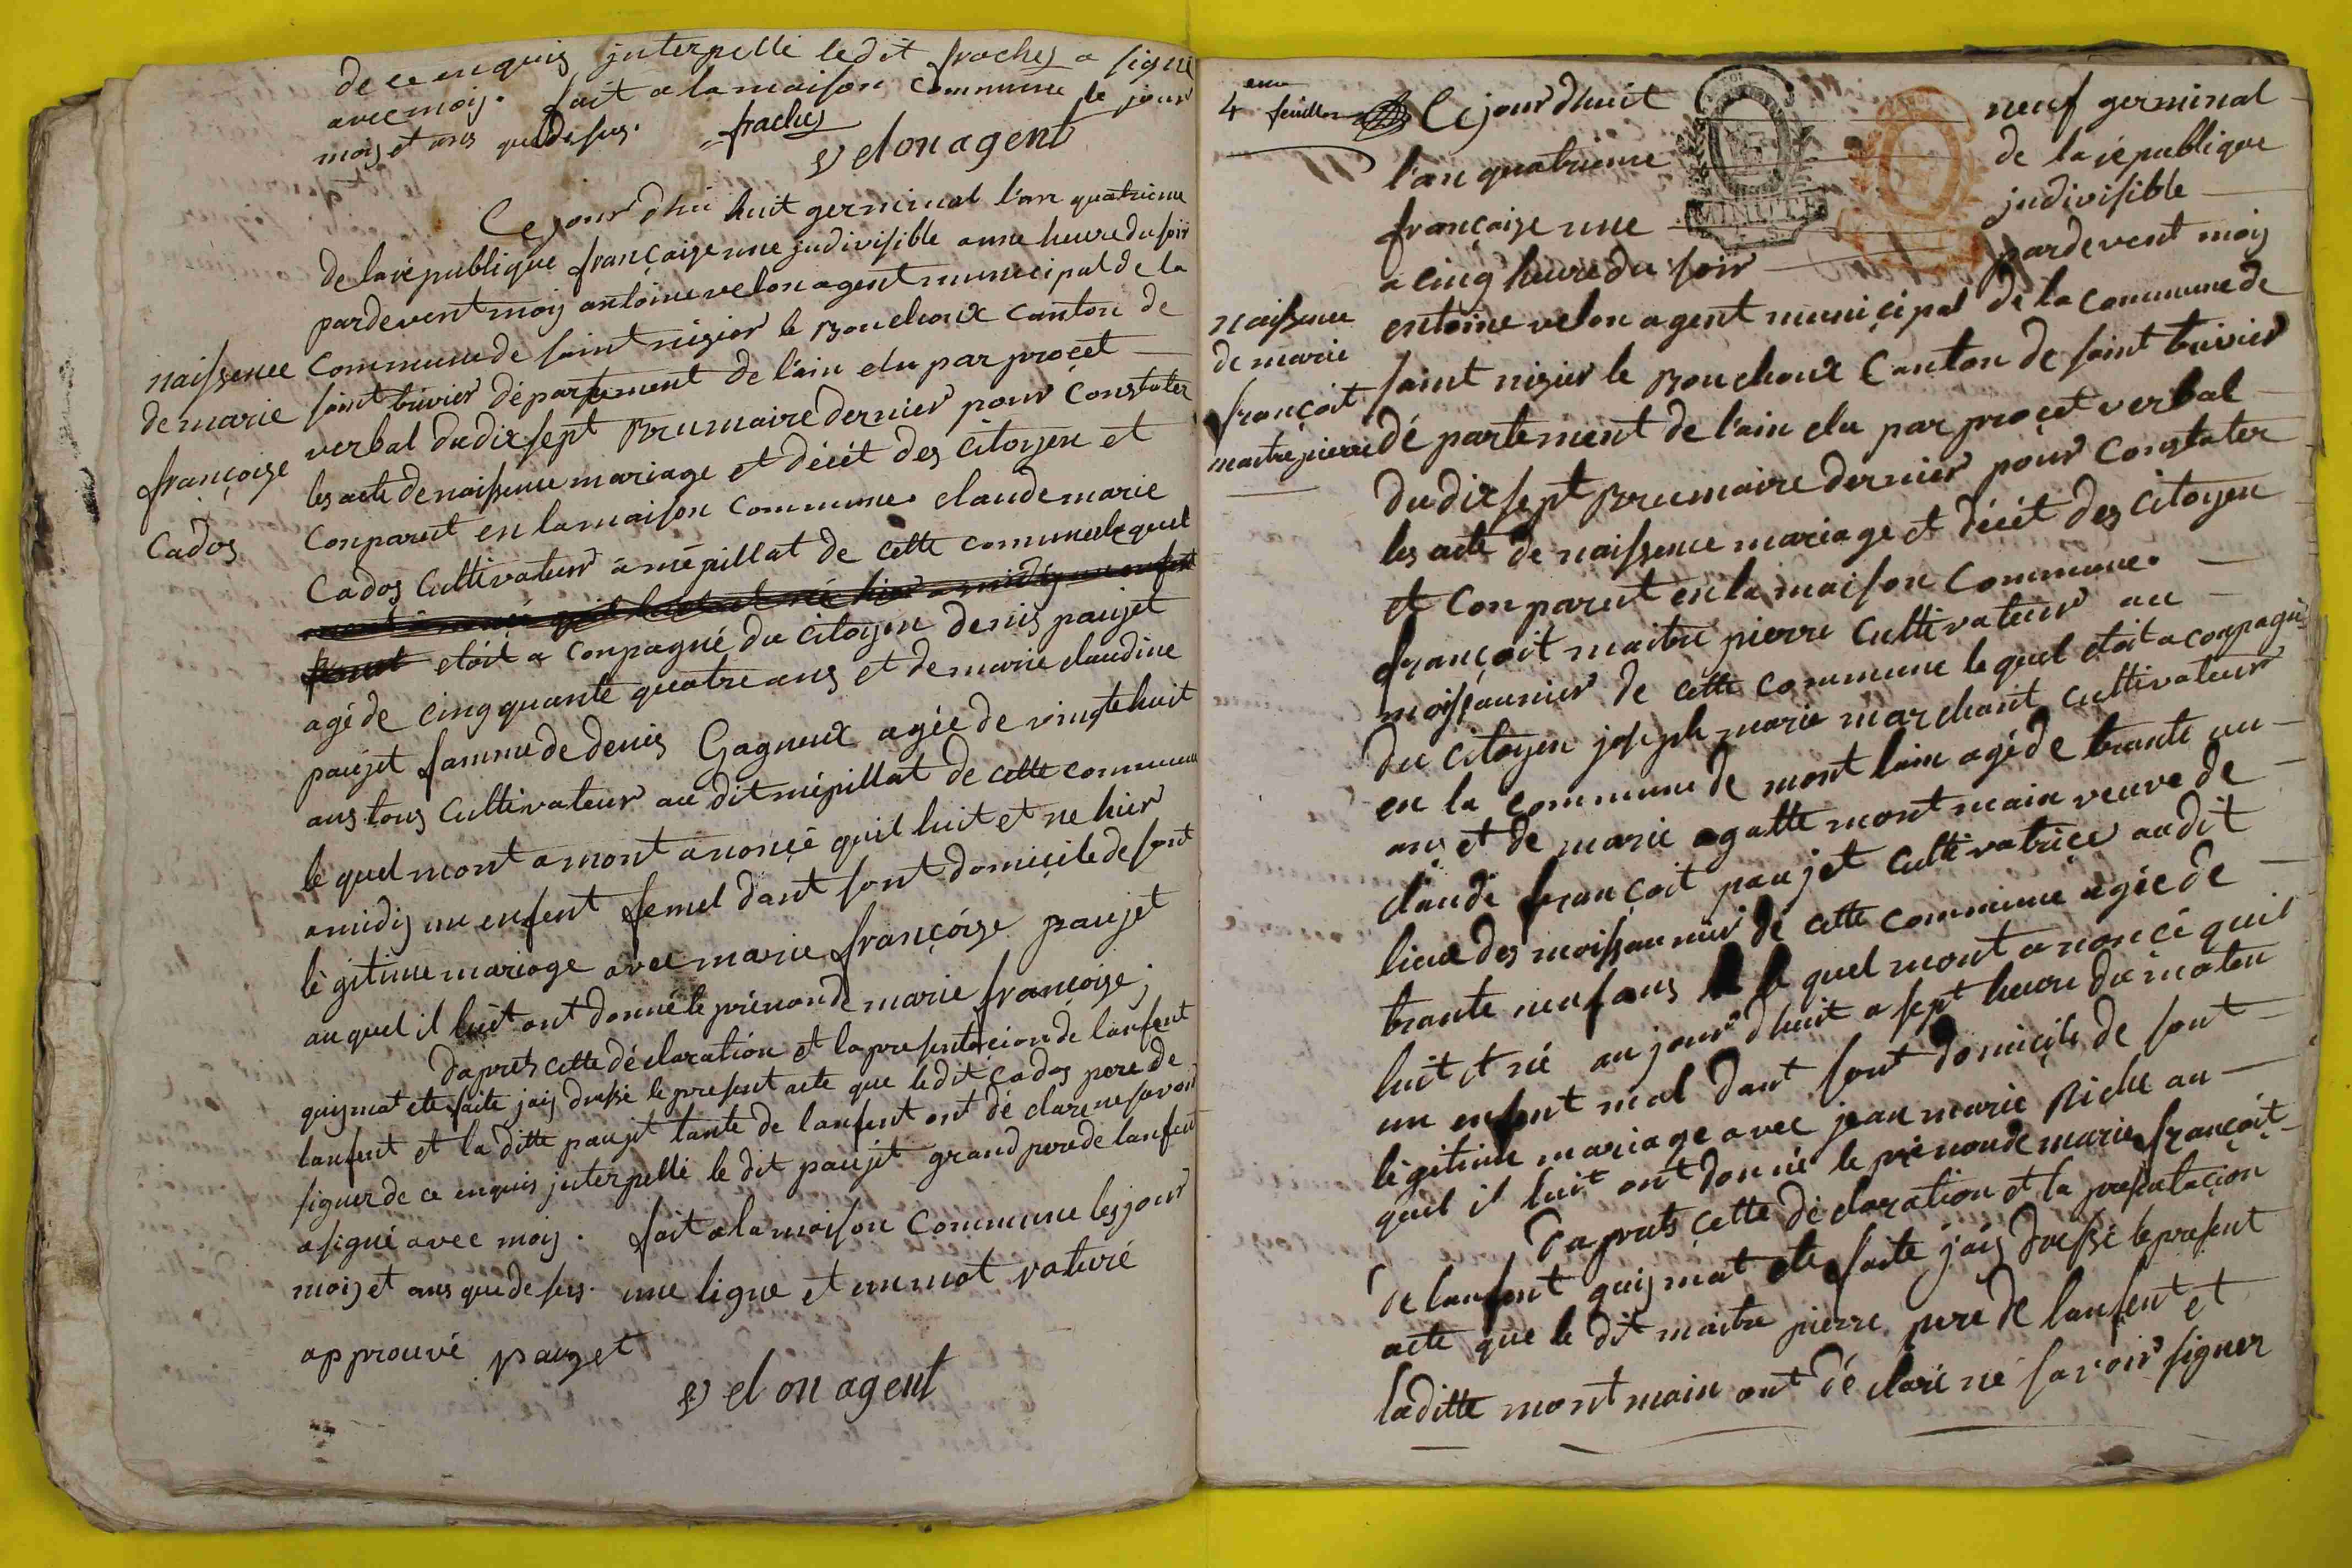 de ce enquis interpellé ledit frachez a signé
avec moij. fait a la maison commune le jour
moij et ans que desus. frachez
velon agent
Ce jour dhui huit germinal l'an quatrieme
de la républiqué françaize une jndivisible a une heure du soir
pardevent moij antoine velon agent municipal de la
commune de saint nizier le Bouchoux canton de
saint trivier département de l'ain elu par procet
verbal du dix sept Brumaire dernier pour constater
les acte de naissence mariage et décét des citoyen et
naissence
de marie
françoize
Cados
conparut en la maison commune. claude marie
Cados Cultivateur à mépillat de cette commune lequel
etóit a conpagné du citoyen denis paujet
agé de cinquante quatre ans et de marie claudine
paujet famme de denis Gagneux agée de vingt huit
ans tous cultivateur au dit mépillat de cette commune
le quel mont a mont anoncé quil luit et ne hier
a midij un enfent femel dant sont domicile de sont
légitime mariage avec marie françóize paujet
au quel il luit ont donné le prénon de marie françoize;
daprets cette déclaration et la presentacion de lanfent
quij mat ete faite jaij dressé le present acte que le dit cados pere de
lanfent et la ditte paujet tante de lanfent ont dé claré ne savoir
signer de ce enquis jnterpellé le dit paujet grand pere de lanfent
a signé avec moij. fait a la maison commune les jour
moij et ans que desus. une ligne et un mot raturé
approuvé pauget
velon agent
4 eme feuillet
Ce jour dhuit neuf germinal
l'an quatrieme de la républiqué
françaize une jndivisible
MINUTE
a cinq heure du soir pardevent moij
entoine velon agent municipal de la commune de
naissence
de marie
françoit
maitre pierre
saint nizier le Bouchoux Canton de saint trivier
département de l'ain elu par procet verbal
du dix sept Brumaire dernier pour constater
les acte de naissence mariage et décét des citoyen
et conparut en la maison commune.
françoit maitre pierre cultivateur au
moissonnier de cette commune le quel etoit a conpagné
du citoyen joseph marie marchant cultivateur
en la commune de mont lain agé de trante un
ans et de marie agatte montmain veuve de
claude françoit paujet cultivatrice audit
lieu des moissonnier de cette commune agée de
trante neuf ans le quel mont a noncé quil
luit et né au jour dhuit a sept heure du maten
un enfent mal dant sont domicile de sont
légitime mariage avec jean marie Riche au
quel il luit ont donné le prénon de marie françoit
Daprets cette déclaration et la presentacion
de lanfent quij mat ete faite jaij dressé le present
acte que le dit maitre pierre pere de lanfent et
laditte montmain ont dé claré né savoir signer